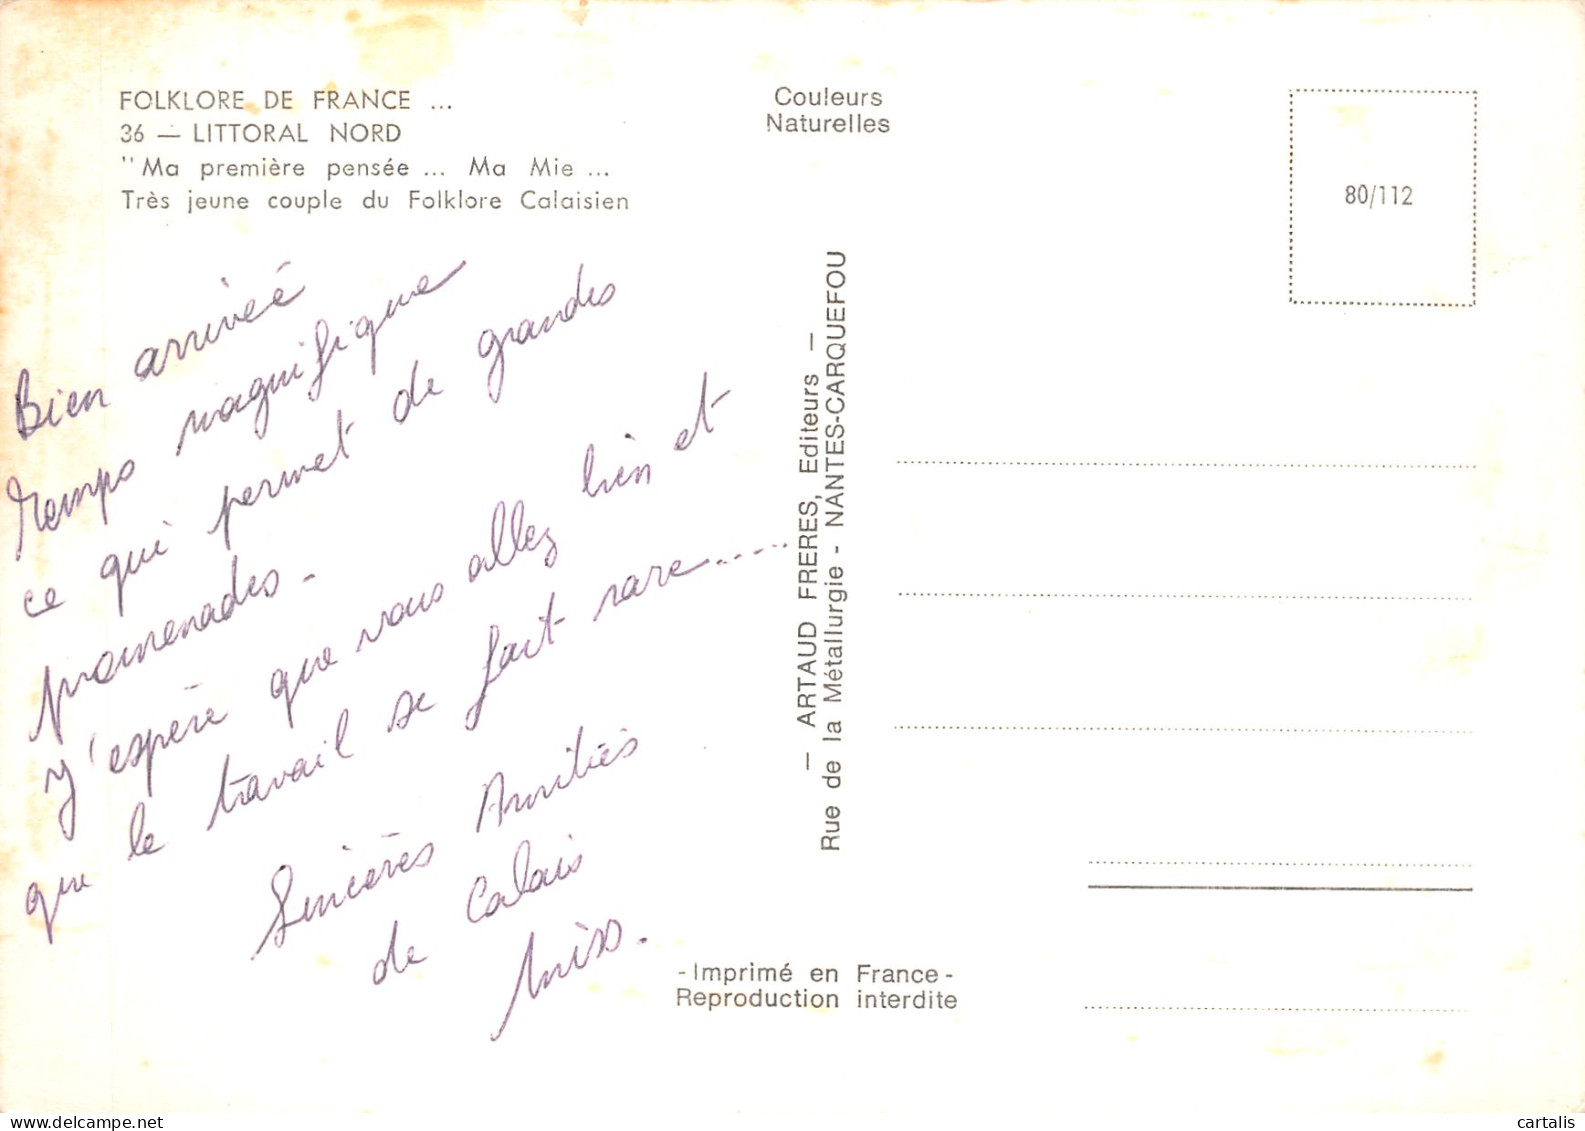 FOLKLORE DE FRANCE ...
36 — LITTORAL NORD
"Ma première pensée ... Ma Mie ...
Très jeune couple du Folklore Calaisien
Couleurs
Naturelles
80/112
Bien arriveé
temps magnifique
ce qui permet de grandes
promenades.
J'espère que vous allez bien et
que le travail se fait rare......
Sincères Amitiés
de Calais
— ARTAUD FRERES, Editeurs —
Rue de la Métallurgie - NANTES-CARQUEFOU
- Imprimé en France -
Reproduction interdite
delcampe.net
cartalis